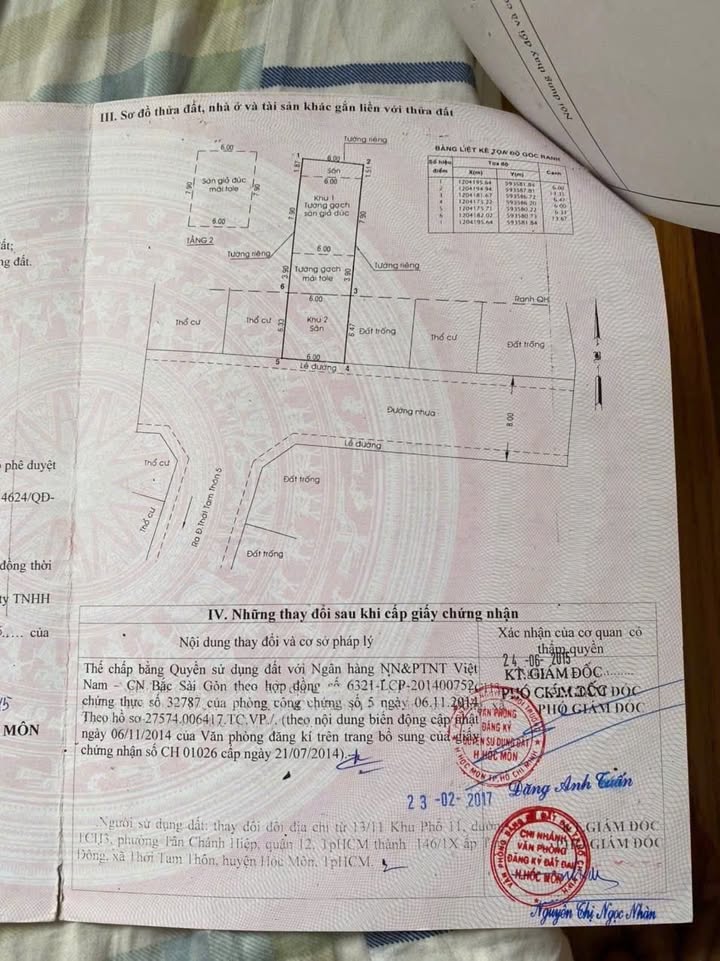 Nội dung thay đổi và cơ
III. Sơ đồ thửa đất, nhà ở và tài sản khác gắn liền với thửa đất
6.00
Sàn giả đúc
mái tole
7.90
7.90
6.00
TẦNG 2
Tường riêng
1
2
6.00
1.87
Sân
1.51
6.00
Khu 1
Tường gạch
sàn giả đúc
7.90
7.90
6.00
Tường riêng
Tường riêng
3.90
Tường gạch
mái tole
3.90
6
3
6.00
Ranh QH
BẢNG LIỆT KÊ TỌA ĐỘ GÓC RANH
Số hiệu điểm
Tọa độ
X(m)
Y(m)
Cạnh
1 1204195.64 593581.84
2 1204194.94 593587.81
3 1204181.67 593586.72
4 1204175.22 593586.20
5 1204175.71 593580.22
6 1204182.02 593580.73
1 1204195.64 593581.84
6.00
13.31
6.47
6.00
6.33
13.67
Thổ cư
Thổ cư
6.33
Khu 2
Sân
6.47
Đất trống
Thổ cư
Đất trống
5
6.00
4
Lề đường
Đường nhựa
8.00
Lề đường
Thổ cư
Thổ cư
Ra Đ.Thới Tam Thôn 5
Đất trống
Đất trống
ất;
ng đất.
phê duyệt
4624/QĐ-
đồng thời
ty TNHH
của
MÔN
IV. Những thay đổi sau khi cấp giấy chứng nhận
Nội dung thay đổi và cơ sở pháp lý
Xác nhận của cơ quan có
thẩm quyền
Thế chấp bằng Quyền sử dụng đất với Ngân hàng NN&PTNT Việt
Nam – CN Bắc Sài Gòn theo hợp đồng số 6321-LCP-201400752,
chứng thực số 32787 của phòng công chứng số 5 ngày 06.11.2014
Theo hồ sơ 27574.006417.TC.VP./. (theo nội dung biến động cập nhật
ngày 06/11/2014 của Văn phòng đăng kí trên trang bổ sung của giấy
chứng nhận số CH 01026 cấp ngày 21/07/2014).
24 -06- 2015
KT. GIÁM ĐỐC
PHÓ GIÁM ĐỐC
PHÓ GIÁM ĐỐC
VĂN PHÒNG
ĐĂNG KÝ
QUYỀN SỬ DỤNG ĐẤT
H.HÓC MÔN
Đặng Anh Tuấn
23 -02- 2017
Người sử dụng đất: thay đổi địa chỉ từ 13/11 Khu Phố 11, đường
TCH3, phường Tân Chánh Hiệp, quận 12, TpHCM thành 146/1X ấp
Đông, xã Thới Tam Thôn, huyện Hóc Môn, TpHCM.
GIÁM ĐỐC
GIÁM ĐỐC
CHI NHÁNH
VĂN PHÒNG
ĐĂNG KÝ ĐẤT ĐAI
H.HÓC MÔN
Nguyễn Thị Ngọc Nhàn